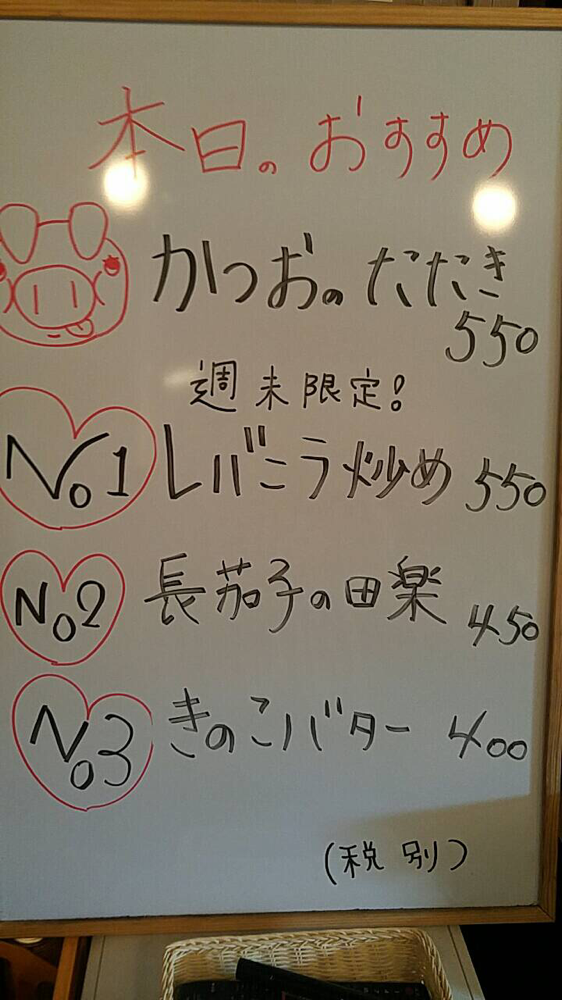 本日のおすすめ
かつおのたたき
550
週末限定!
No1 レバニラ炒め 550
No2 長茄子の田楽 450
No3 きのこバター 400
(税別)